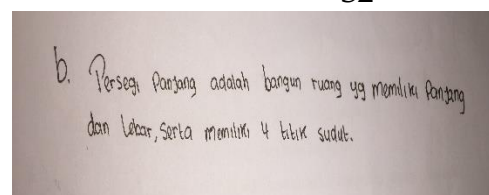 b. Persegi Panjang adalah bangun ruang yg memiliki Panjang
dan Lebar, serta memiliki 4 titik sudut.